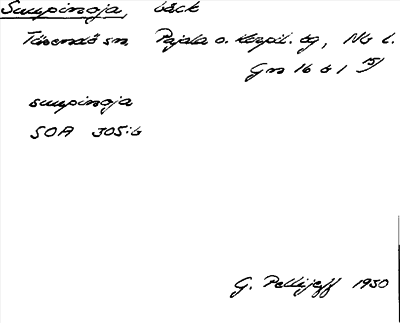 Suupinoja, bäck
Tärendö sn. Pajala o. Korpil. tg, Nb l.
Gn 16 b 1
suupinoja
SOA 305:6
G. Pellijeff 1950